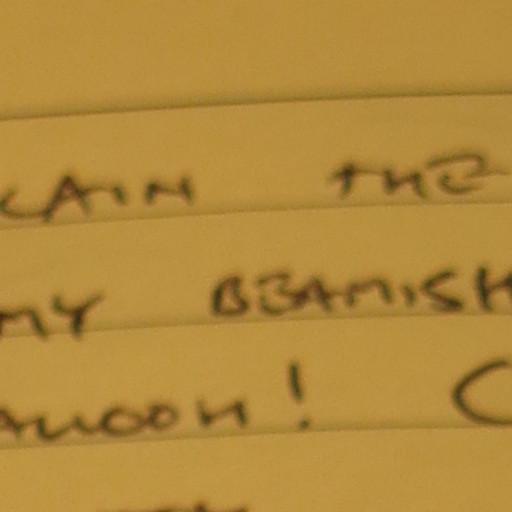 LAIN THE
MY BEAMISH
ALLOOH! C